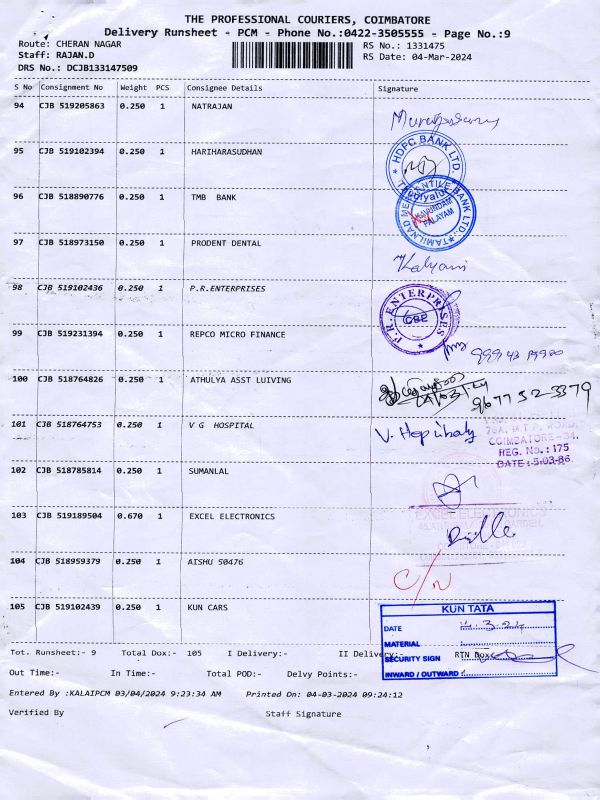 THE PROFESSIONAL COURIERS, COIMBATORE
Delivery Runsheet - PCM - Phone No.:0422-3505555 - Page No.:9
Route: CHERAN NAGAR RS No.: 1331475
Staff: RAJAN.D RS Date: 04-Mar-2024
DRS No.: DCJB133147509
S No Consignment No Weight PCS Consignee Details Signature
94 CJB 519205863 0.250 1 NATRAJAN
95 CJB 519102394 0.250 1 HARIHARASUDHAN
HDFC BANK LTD.
96 CJB 518890776 0.250 1 TMB BANK
TAMILNAD MERCANTILE BANK LTD.
KAVUNDAM
PALAYAM
97 CJB 518973150 0.250 1 PRODENT DENTAL
Kalyani
98 CJB 519102436 0.250 1 P.R.ENTERPRISES
P.R. ENTERPRISES
CBE
99 CJB 519231394 0.250 1 REPCO MICRO FINANCE
100 CJB 518764826 0.250 1 ATHULYA ASST LUIVING
9677523379
101 CJB 518764753 0.250 1 V G HOSPITAL
COIMBATORE-34.
REG. No.: 175
DATE: 5-03-86.
102 CJB 518785814 0.250 1 SUMANLAL
103 CJB 519189504 0.670 1 EXCEL ELECTRONICS
104 CJB 518959379 0.250 1 AISHU 50476
C/N
105 CJB 519102439 0.250 1 KUN CARS
KUN TATA
DATE 4.3.24
MATERIAL
SECURITY SIGN
INWARD / OUTWARD :
Tot. Runsheet:- 9 Total Dox:- 105 I Delivery:- II Delivery:- RTN Dox:-
Out Time:- In Time:- Total POD:- Delvy Points:-
Entered By :KALAIPCM 03/04/2024 9:23:34 AM Printed On: 04-03-2024 09:24:12
Verified By Staff Signature